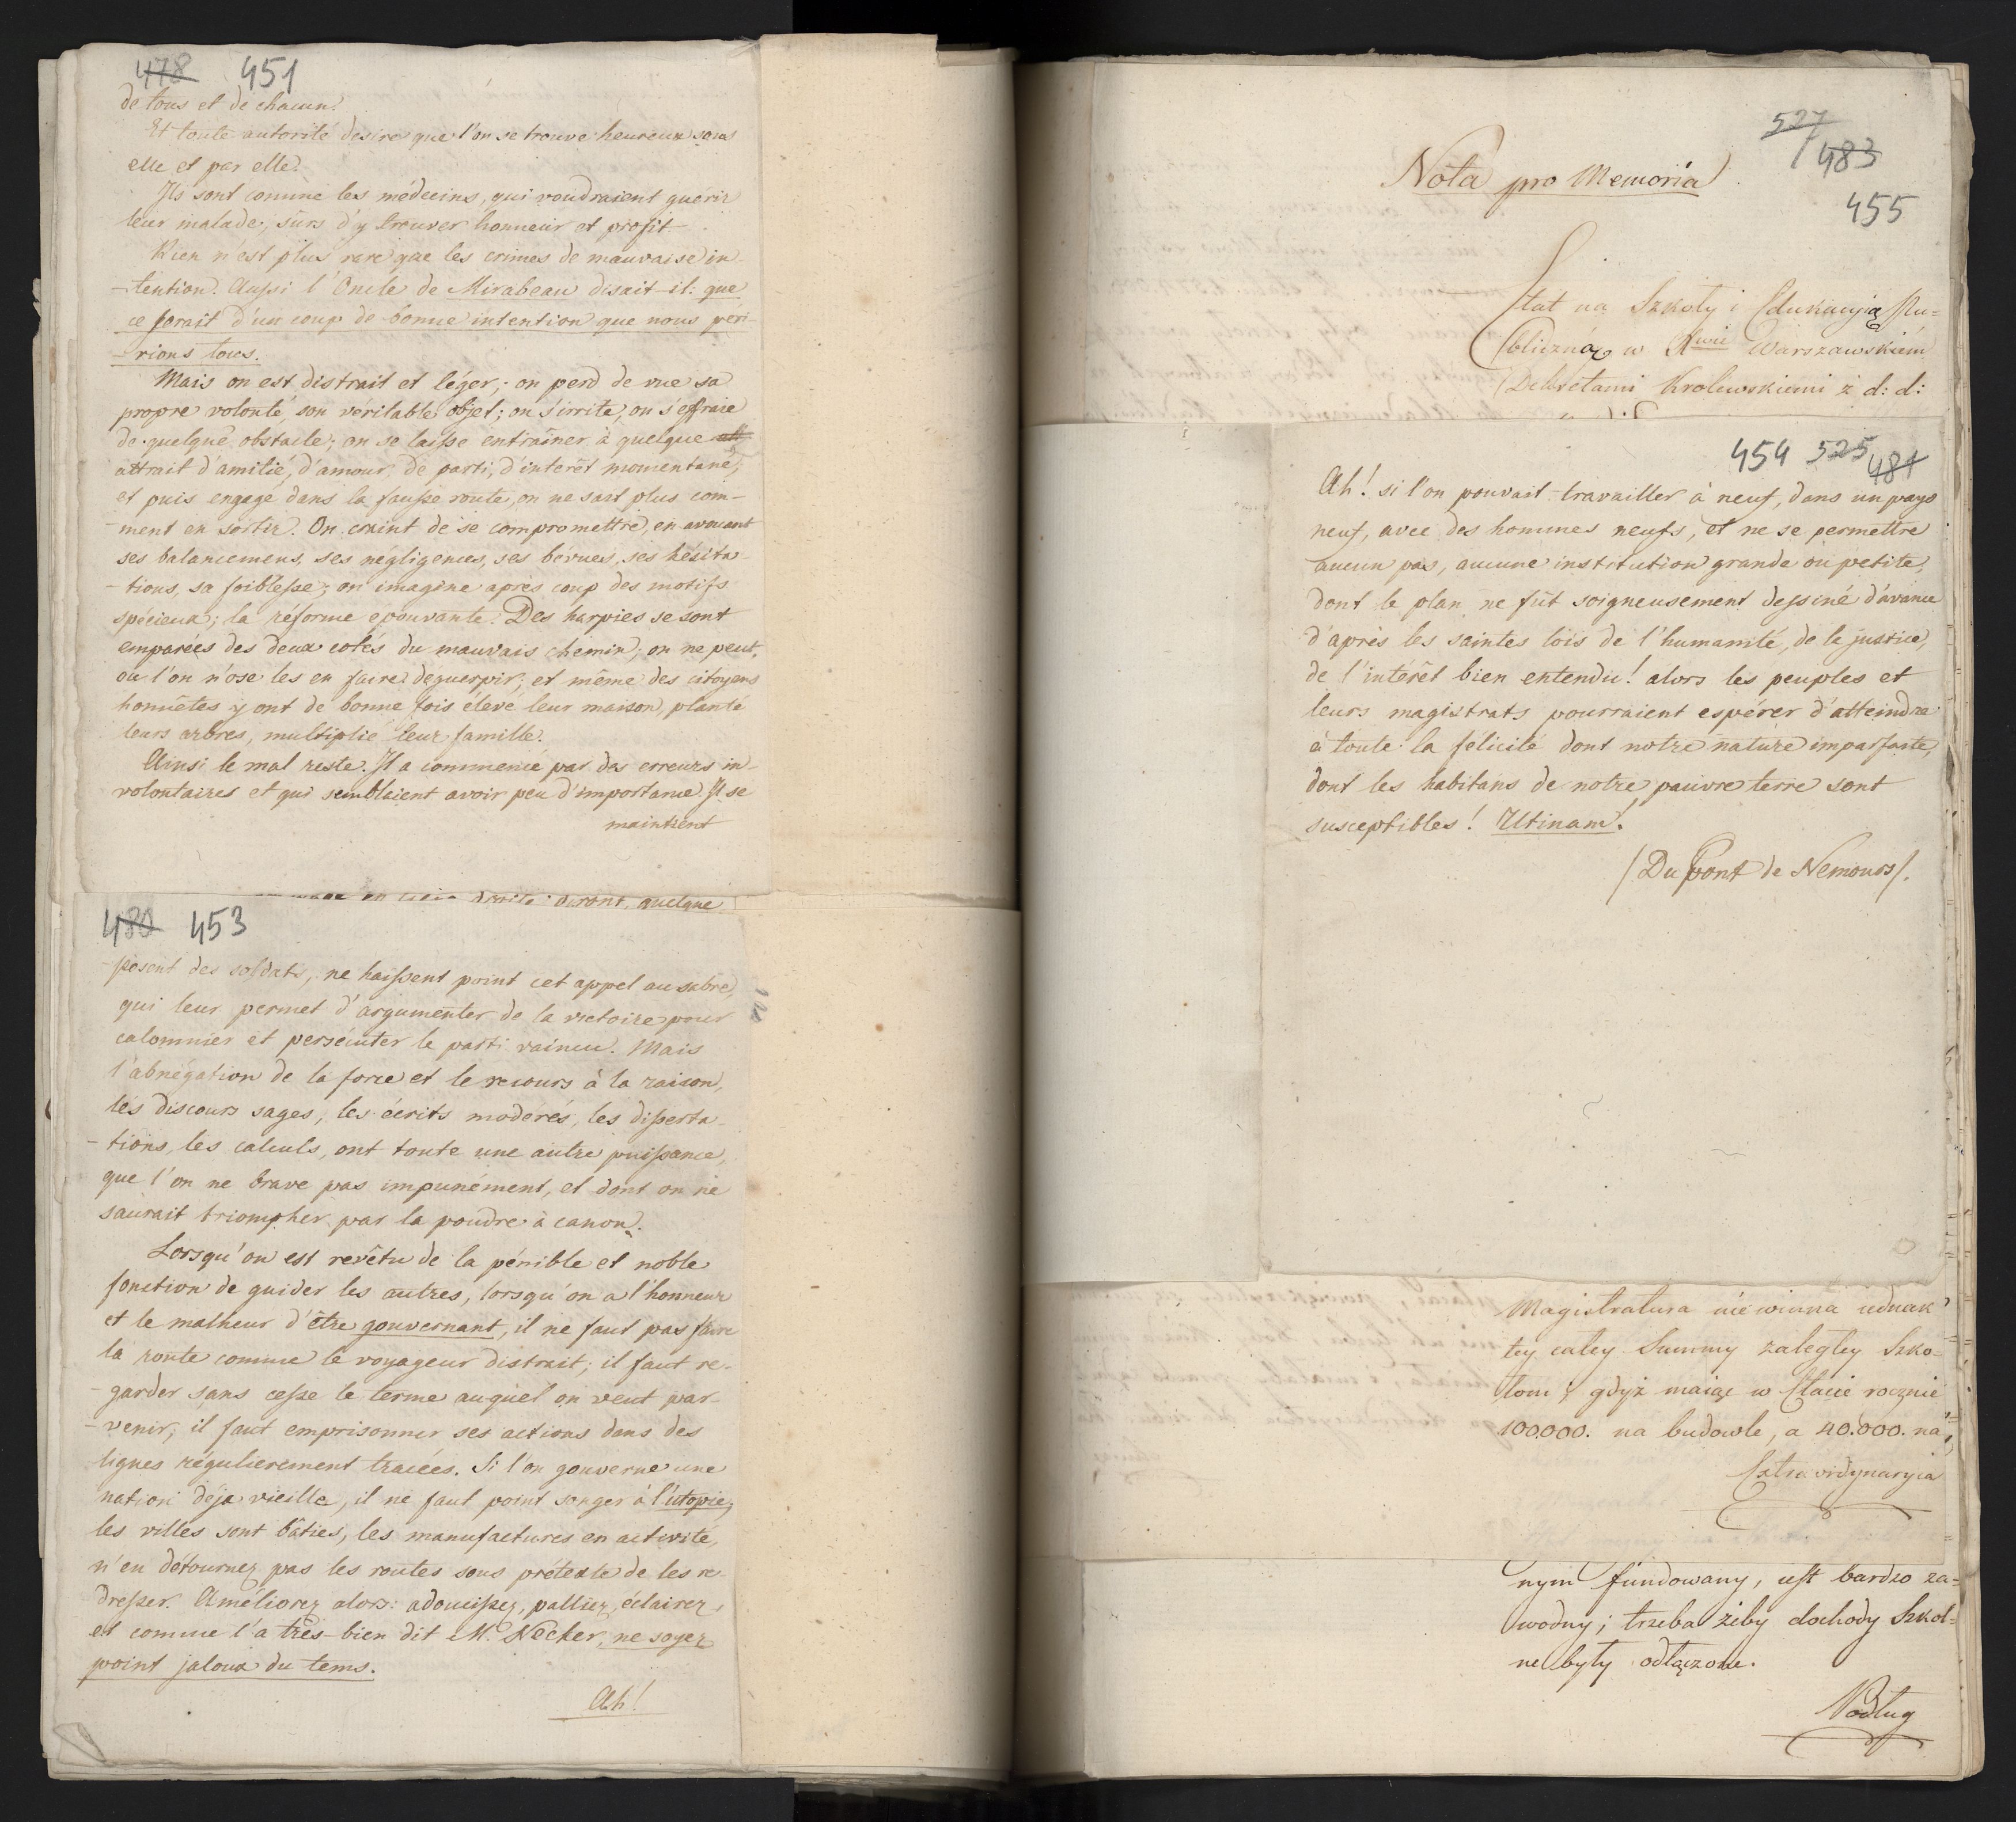 478 451
de tous et de chacun.
Et toute autorité desire que l'on se trouve heureux sous
elle et par elle.
Ils sont comme les médecins, qui voudraient guérir
leur malade, sûrs d'y trouver honneur et profit.
Rien n'est plus rare que les crimes de mauvaise in-
-tention. Aussi l'Oncle de Mirabeau disait-il: que
ce serait d'un coup de bonne intention que nous péri-
-rions tous.
Mais on est distrait et léger; on perd de vue sa
propre volonté, son véritable objet; on s'irrite, on s'effraie
de quelque obstacle; on se laisse entraîner à quelque att
attrait d'amitié, d'amour, de parti, d'interêt momentané;
et puis engagé dans la fausse route, on ne sait plus com-
-ment en sortir. On craint de se compromettre en avouant
ses balancemens, ses négligences, ses bévues, ses hésita-
-tions, sa foiblesse; on imagine après coup des motifs
spécieux; la réforme épouvante. Des harpies se sont
emparées des deux cotés du mauvais chemin; on ne peut,
ou l'on n'ose les en faire déguerpir; et même des citoyens
honnêtes y ont de bonne fois élevé leur maison, planté
leurs arbres, multiplié leur famille.
Ainsi le mal reste. Il a commencé par des erreurs in-
volontaires et qui semblaient avoir peu d'importance. Il se
maintient
droite auront quelque
480 453
-posent des soldats, ne haissent point cet appel au sabre,
qui leur permet d'argumenter de la victoire pour
calomnier et persécuter le parti vaincu. Mais
l'abnégation de la force et le recours à la raison,
les discours sages, les écrits modérés, les disserta-
-tions, les calculs, ont toute une autre puissance,
que l'on ne brave pas impunément, et dont on ne
saurait triompher par la poudre à canon.
Lorsqu'on est revêtu de la pénible et noble
fonction de guider les autres, lorsqu'on a l'honneur
et le malheur d'être gouvernant, il ne faut pas faire
la route comme le voyageur distrait; il faut re-
-garder sans cesse le terme auquel on veut par-
-venir; il faut emprisonner ses actions dans des
lignes régulierement tracées. Si l'on gouverne une
nation déja vieille, il ne faut point songer à l'utopie;
les villes sont bâties, les manufactures en activité,
n'en détournez pas les routes sous prétexte de les re-
dresser. Améliorez alors: adoucissez, palliez, éclairez,
et comme l'a très-bien dit M. Necker, ne soyez
point jaloux du tems.
Ah!
527
483
455
Nota pro Memoria
Etat na Szkoły i Edukacyią Pu=
bliczną w Xwie Warszawskiem
Dekretami Krolewskiemi z d: d:
454 525 481
Ah! si l'on pouvait travailler à neuf, dans un pays
neuf, avec des hommes neufs, et ne se permettre
aucun pas, aucune institution grande ou petite,
dont le plan ne fût soigneusement dessiné d'avance
d'après les saintes lois de l'humanité, de la justice,
de l'intérêt bien entendu! alors les peuples et
leurs magistrats pourraient espérer d'atteindre
à toute la félicité dont notre nature imparfaite,
dont les habitans de notre pauvre terre sont
susceptibles! Utinam!
/Du Pont de Nemours/.
Magistratura nie winna iednak
tey całey Summy zaległey Szko=
łom; gdyż maiąc w Etacie rocznie
100.000. na budowle, a 40.000. na
Extraordynaryia
nym fundowany, iest bardzo za=
wodny; trzeba żeby dochody Szkol=
ne były odłączone.
Podług